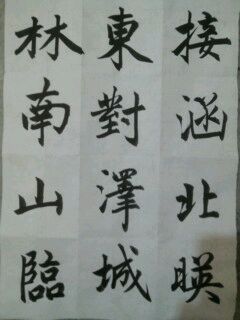 接涵北暎
東對澤城
林南山臨